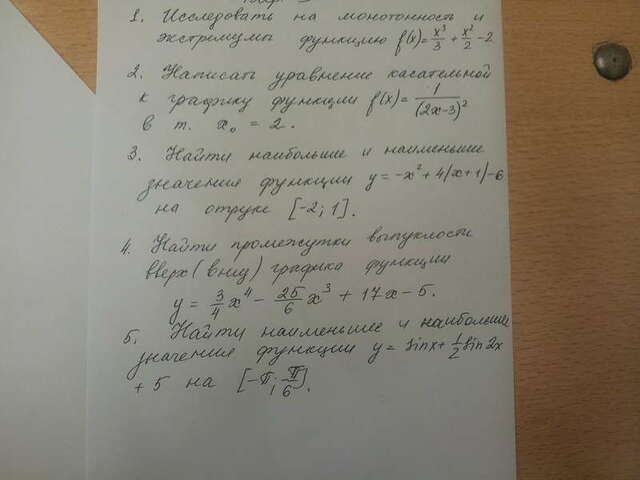 1. Исследовать на монотонность и
экстремумы функцию f(x)=x³/3 + x²/2 - 2
2. Написать уравнение касательной
к графику функции f(x)= 1/(2x-3)²
в т. x₀ = 2.
3. Найти наибольшее и наименьшее
значения функции y = -x² + 4|x+1|-6
на отрезке [-2; 1].
4. Найти промежутки выпуклости
вверх (вниз) графика функции
y = 3/4 x⁴ - 25/6 x³ + 17x - 5.
5. Найти наименьшие и наибольшие
значения функции y = sinx + 1/2 sin2x
+ 5 на [-π; π/6].